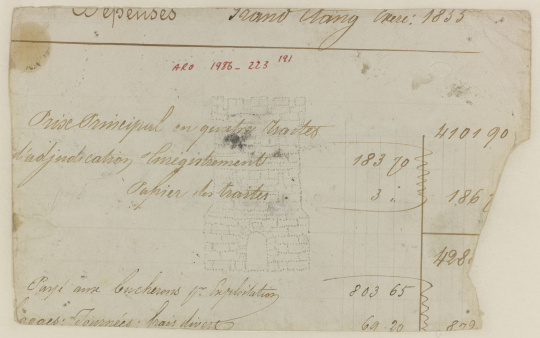 Dépenses Grand Etang Exre: 1855
ARO 1986-223 191
Prix Principal en quatre traites 4101 90
d'adjudication Enregistrement 183 70
Papier des traites 3 " 186
428
Payé aux bucherons pr Exploitation 803 65
Journées, frais divers 69 20